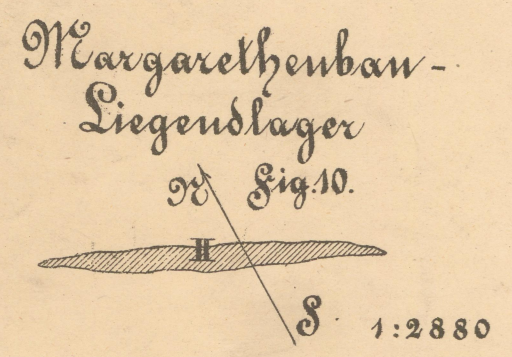 Margarethenbau-
Liegendlager
N Fig.10.
II
S 1:2880